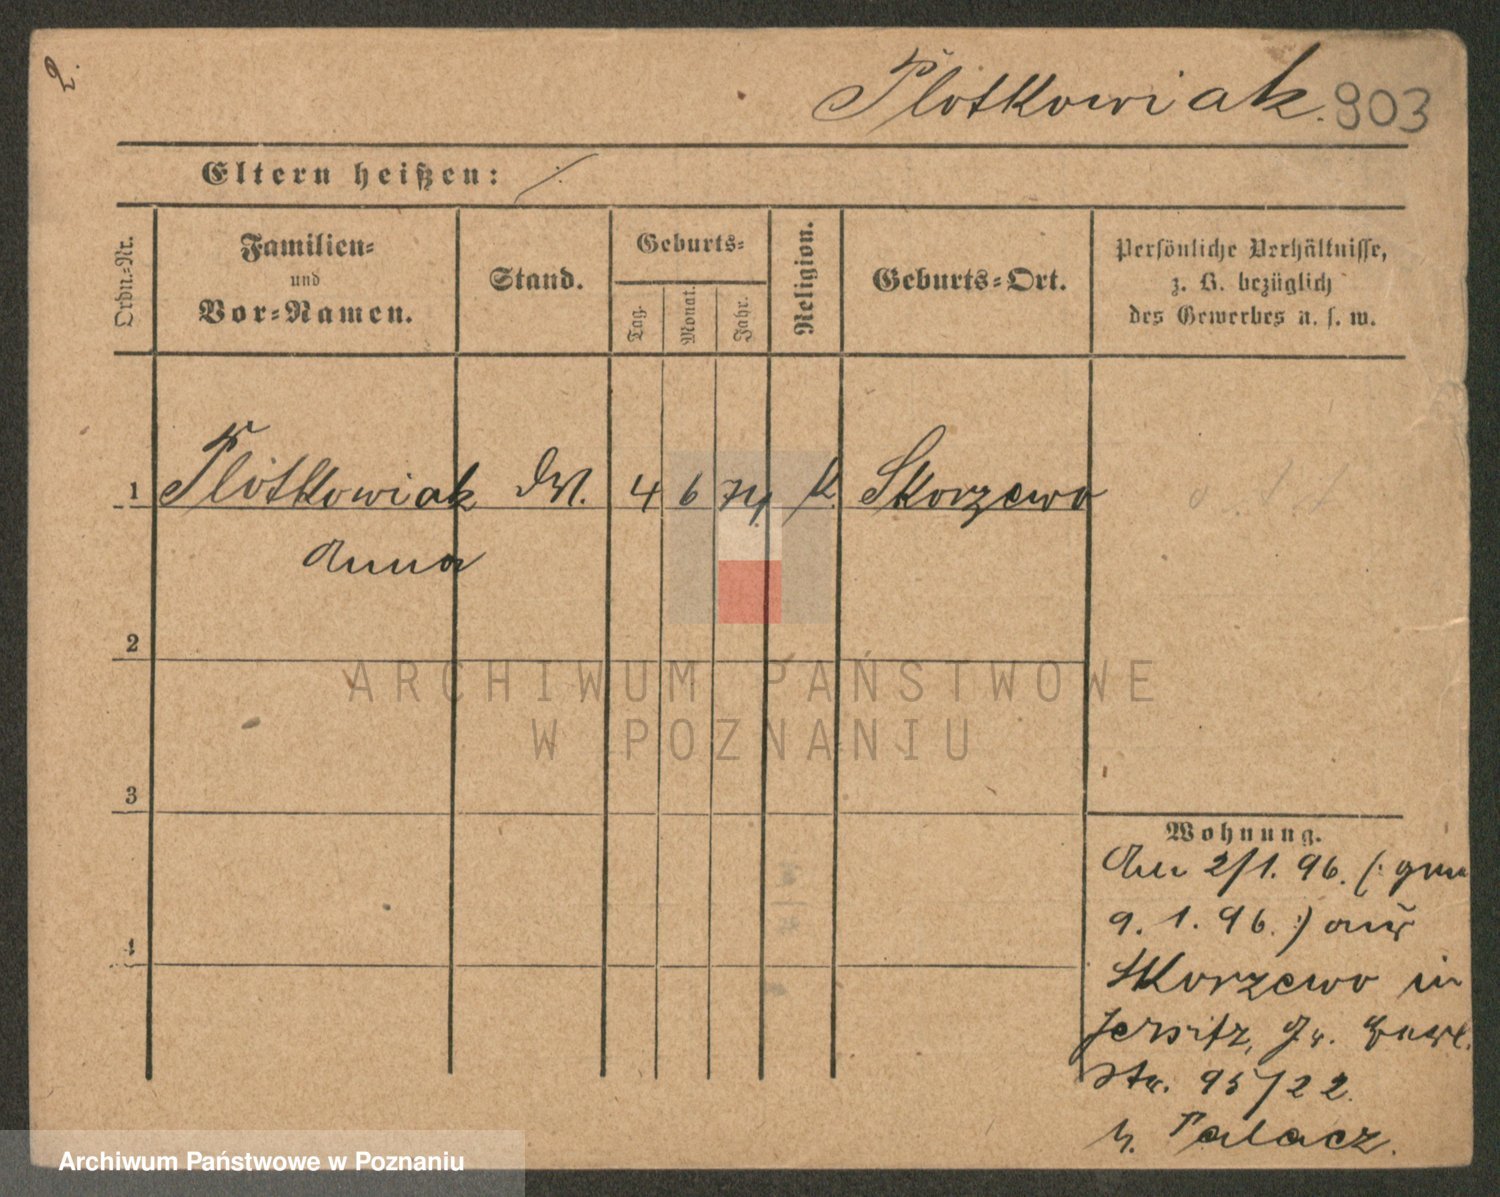 2.
Plotkowiak. 903
Eltern heißen: ./.
Ordn.-Nr.
Familien-
und
Vor-Namen.
Stand.
Geburts-
Tag.
Monat.
Jahr.
Religion.
Geburts-Ort.
Persönliche Verhältnisse,
z. B. bezüglich
des Gewerbes u. s. w.
1 Plotkowiak 4 6 74. K. Skorzewo
Anna
2
3
4
Wohnung.
2/1. 96. (: gem
9. 1. 96. :) aus
Skorzewo in
Jersitz, Gr.
Str. 95/22
b. Palacz.
ARCHIWUM PAŃSTWOWE
W POZNANIU
Archiwum Państwowe w Poznaniu